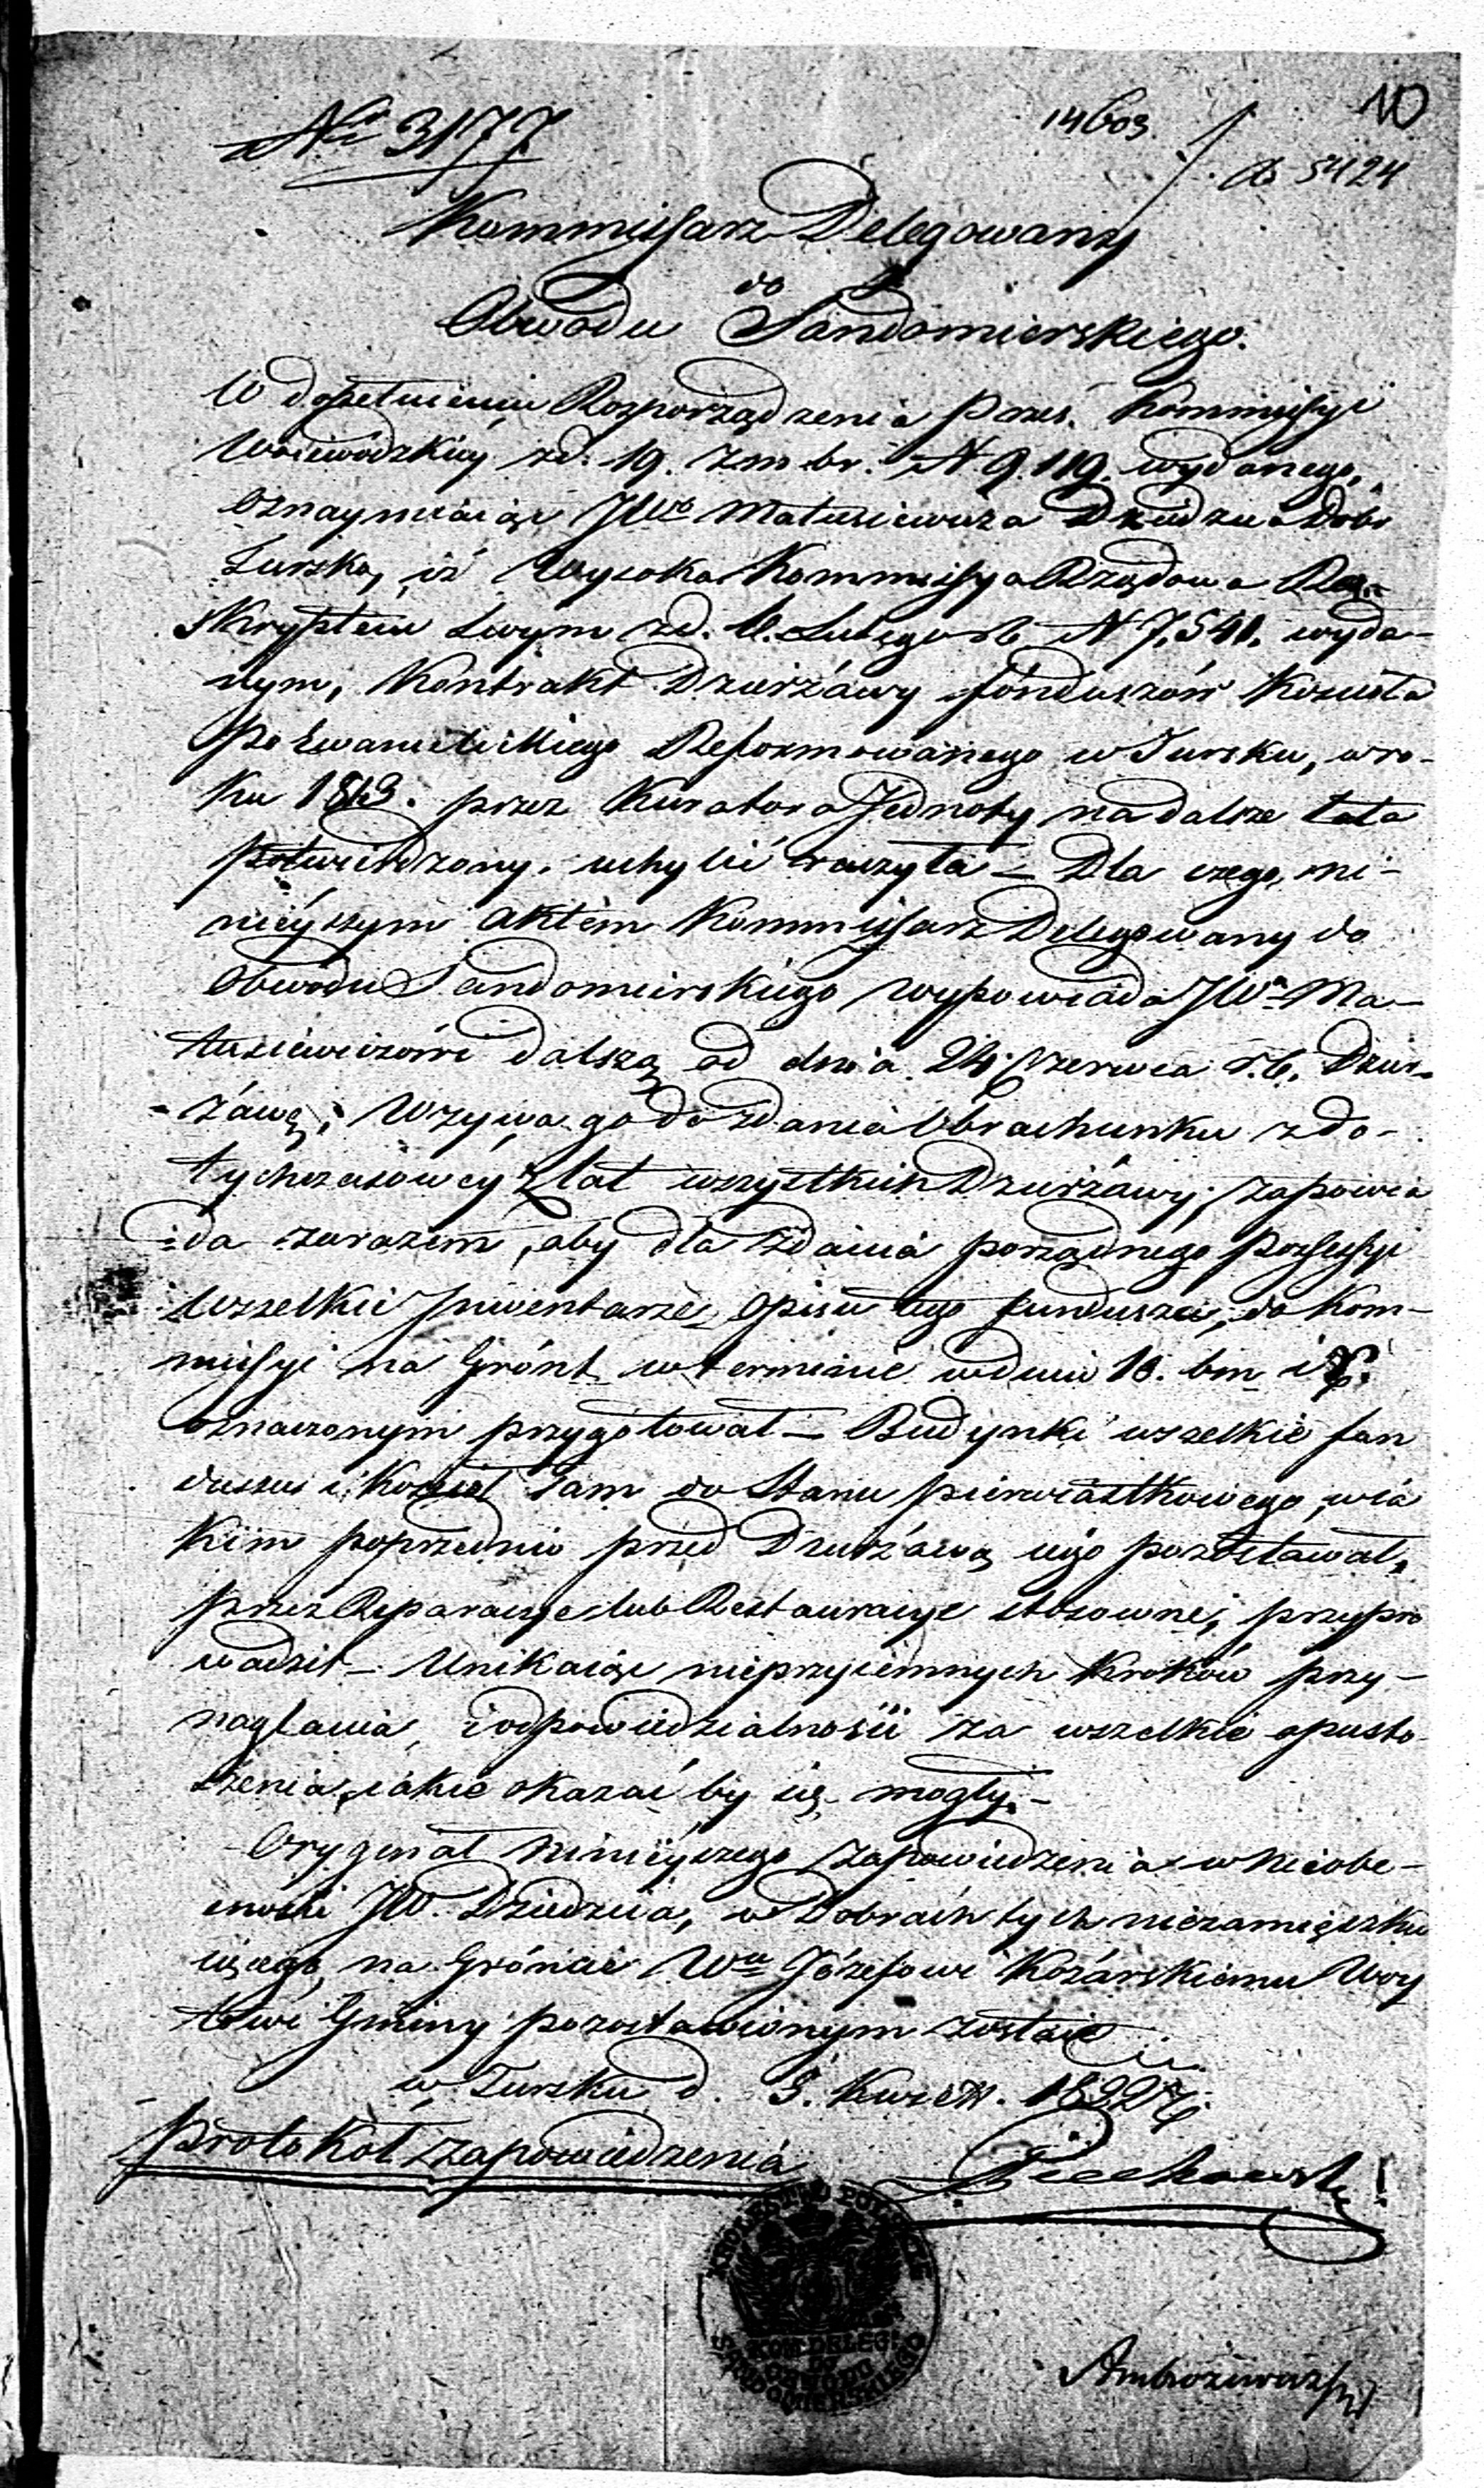 10
14603
Nro 3177
ad 5424
Kommissarz Delegowany
do
Obwodu Sandomierskiego.
W dopełnieniu Rozporządzenia Prześ. Kommissyi
Woiewódzkiey zd. 19. zm br. N 9.119. wydanego,
oznaymiaiąc JWo Matusiewicza Dziedzica Dobr
Turska, iż Wysoka Kommissya Rządowa Re-
skryptem swym zd. Lutego rb N 7,541. wyda-
nym, Kontrakt Dzierżawy fónduszów Koscioła
po Ewanielickiego Reformowanego w Tursku, w ro-
ku 1813. przez Kuratora Jednoty na dalsze lata
potwierdzony, uchylić raczyła – Dla czego, ni-
nieyszym aktem Kommissarz Delegowany do
Obwodu Sandomirskiego wypowiada JWu Ma-
tusiewiczowi dalszą od dnia 24. Czerwca r.b. Dzier-
żawę; Wzywa go do zdania Obrachunku z do-
tychczasowéy z lat wszystkich Dzierżawy; zapowia
da zarazem, aby dla zdania porządnego Possessyi
wszelkie Inwentarze, Opisu tego funduszu, do Kom-
missyi na Grónt w terminie w dniu 18. bm i r.
oznaczonym przygotował – Budynki wszelkie fun
duszu i Kosciół sam do Stanu pierwiastkowego, w ia
kim poprzednio przed Dzierżawą iego pozostawał,
przez Reparacye lub Restauracye stosowne, przypro
wadził – Unikaiąc nieprzyiemnych kroków przy-
naglania, i odpowiedzialności za wszelkie opusto-
szenia, iakie okazać by się mogły. –
Oryginał ninieyszego zapowiedzenia w nieobe-
cności JW. Dziedzica, w Dobrach tych niezamieszku
iącego, na Gróncie Wu Józefowi Kozarskiemu Woy
towi Gminy pozostawionym zostaie
w Tursku d. 3. Kwietn. 1822 r.
Protokoł zapowiedzenia
KROLESTWO POLSKIE
KOM: DELEG:
DO
OBWODU
SANDOMIERSKIEGO